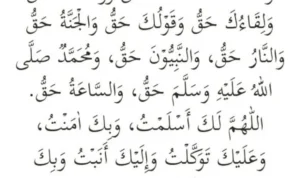 وَلِقَاءُكَ حَقُّ وَقَوْلُكَ حَقُّ وَالْجَنَّةُ حَقُّ
وَالنَّارُ حَقُّ، وَالنَّبِيُّوْنَ حَقُّ، وَمُحَمَّدٌ صَلَّى
اللهُ عَلَيْهِ وَسَلَّمَ حَقُّ، وَالسَّاعَةُ حَقُّ.
اَللّٰهُمَّ لَكَ أَسْلَمْتُ، وَبِكَ اٰمَنْتُ،
وَعَلَيْكَ تَوَكَّلْتُ وَإِلَيْكَ أَنَبْتُ وَبِكَ